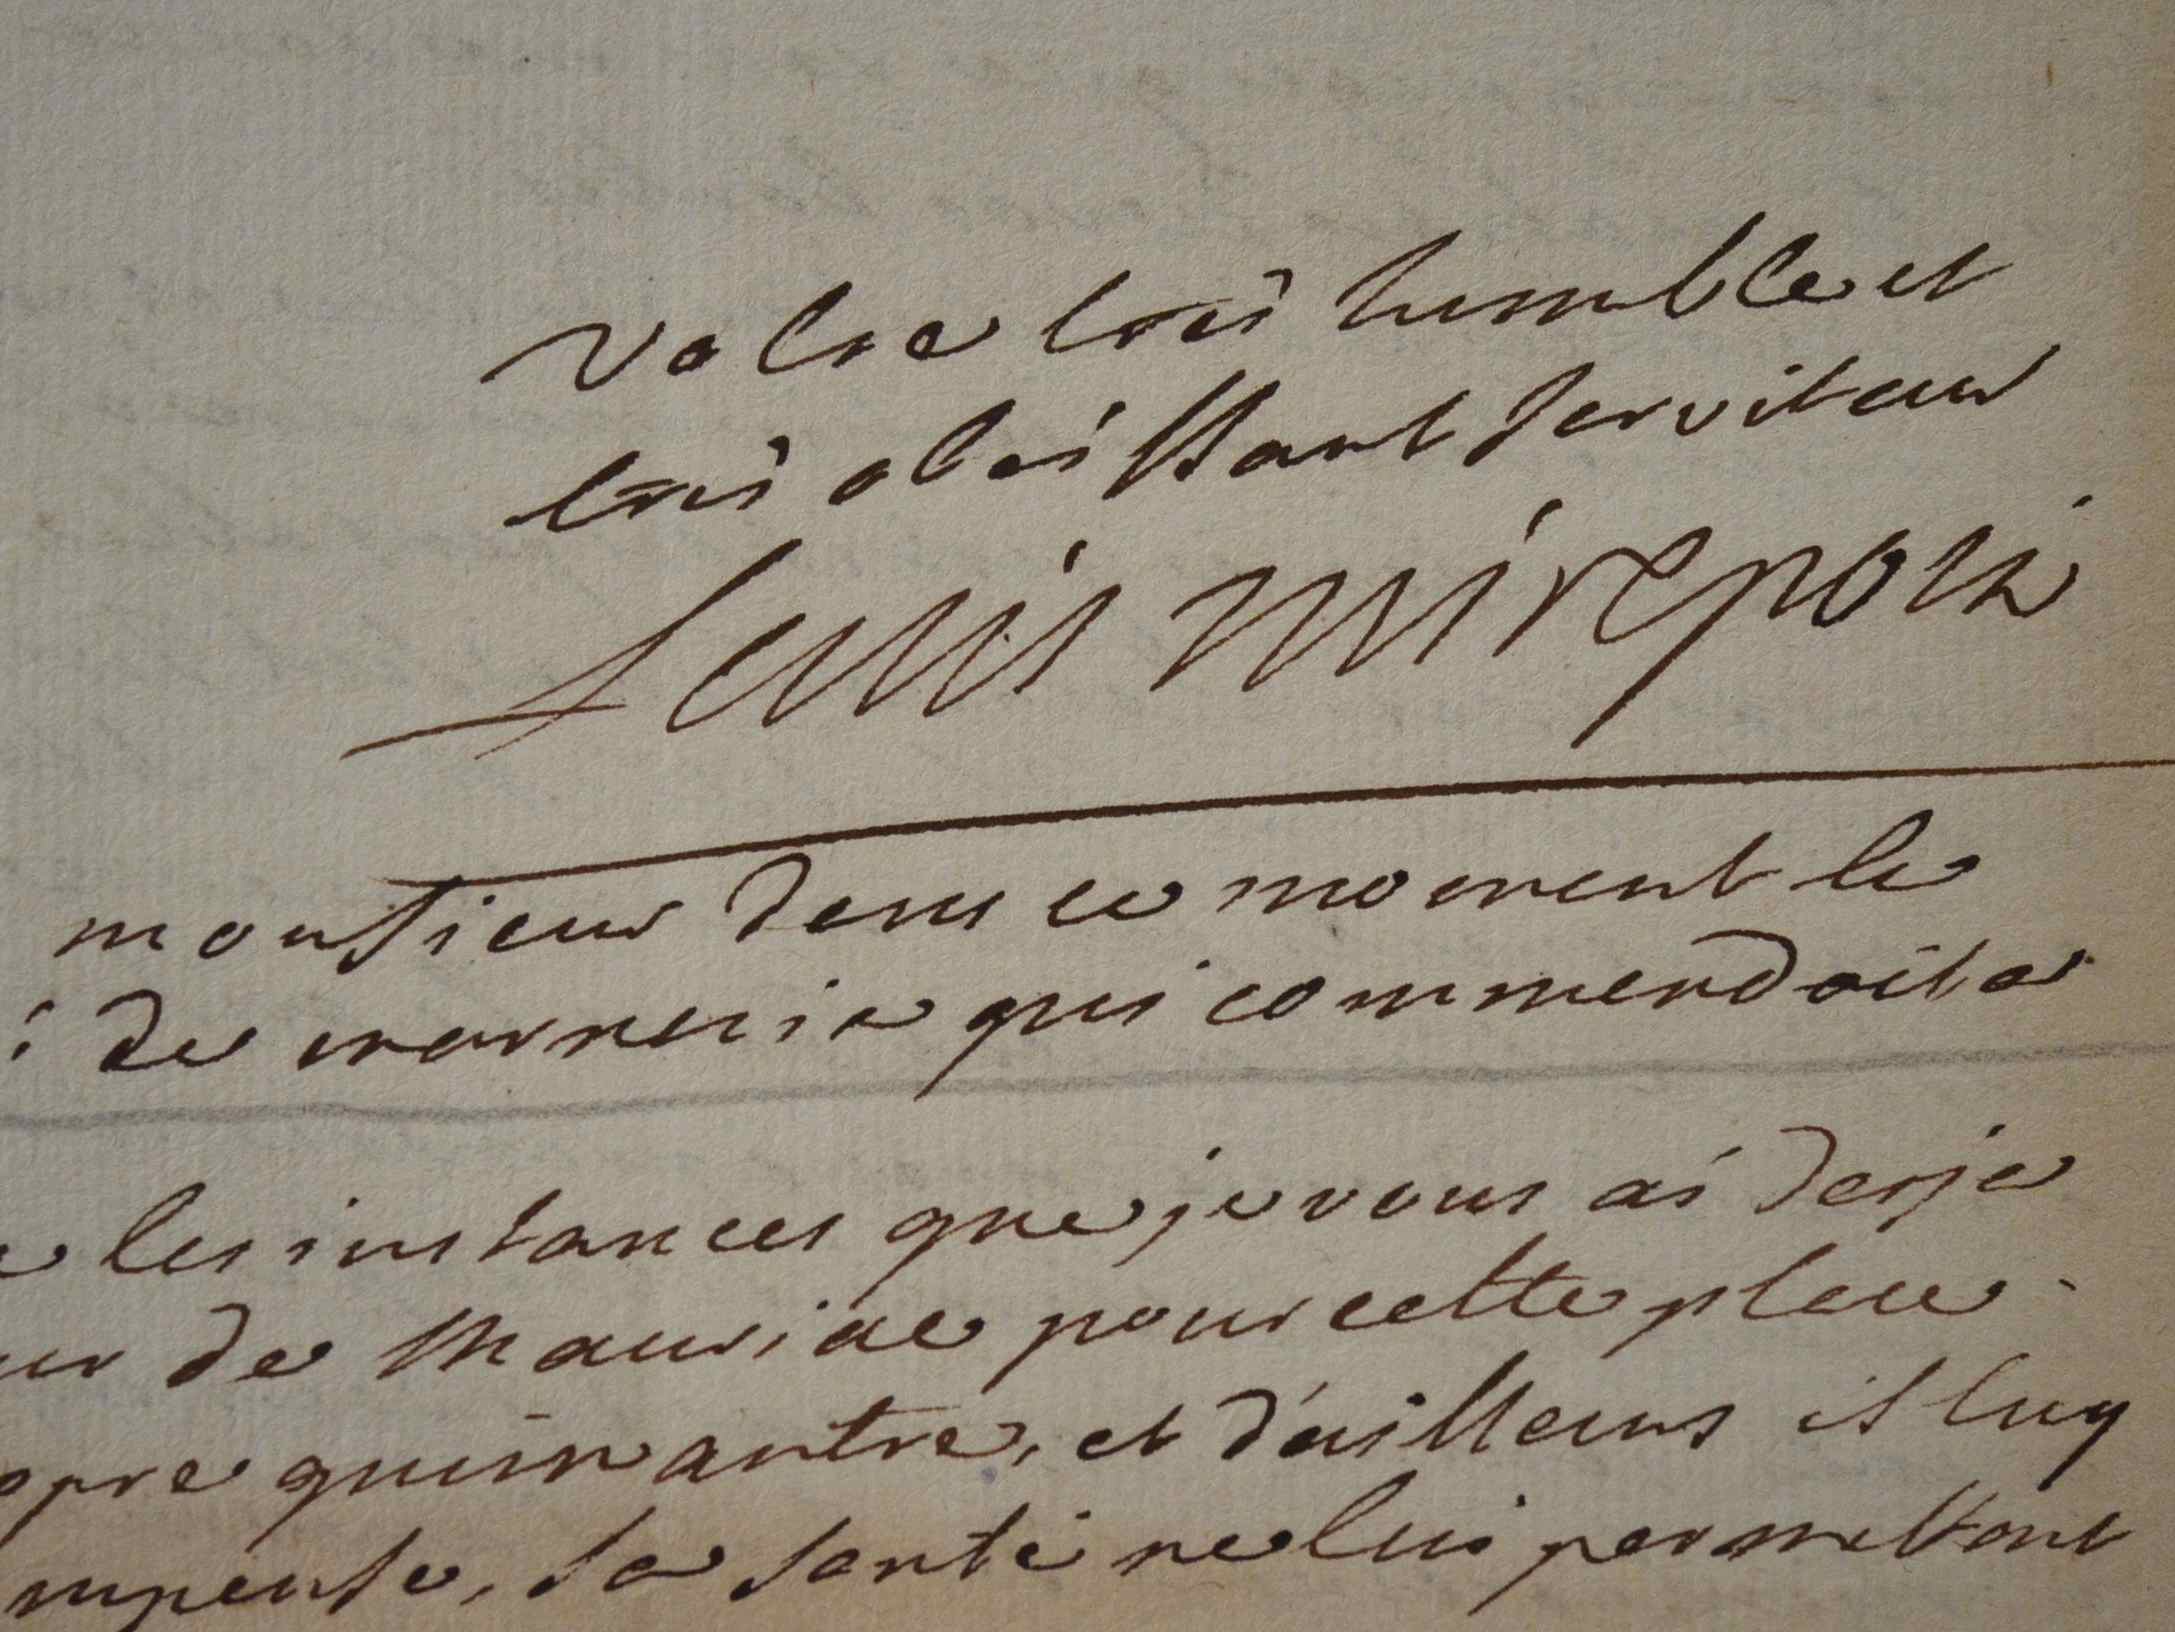 votre très humble et
très obeissant serviteur
Levis mirepoix
monsieur dans ce moment le
de qui commendoit a
les instances que je vous ai desja
de Mauriac pour cette place
qu'un autre, et d'ailleurs il luy
sa santé ne lui permettant